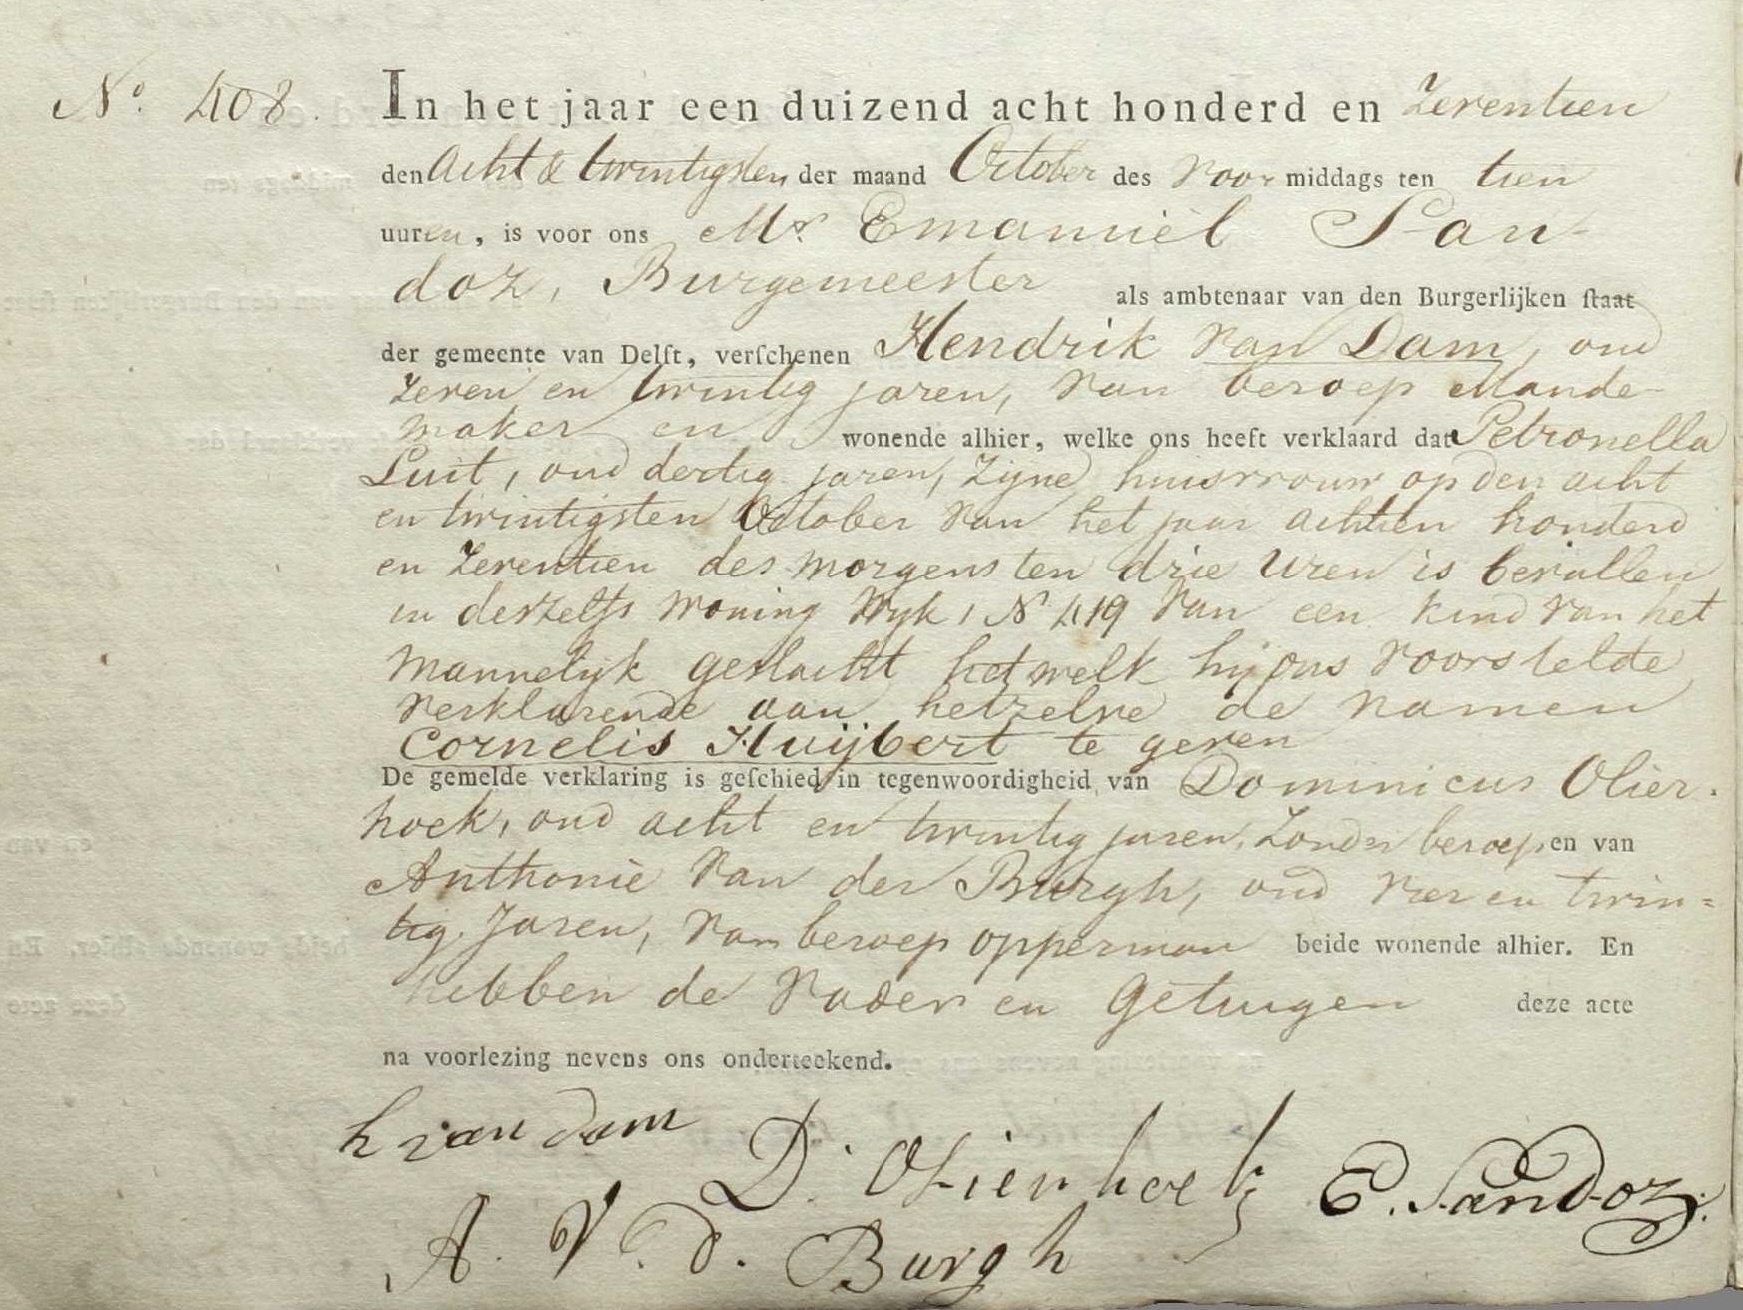 No. 408. In het jaar een duizend acht honderd en Zeventien
den Acht & twintigsten der maand October des voor middags ten tien
uuren, is voor ons Mr. Emanuièl San-
doz, Burgemeester als ambtenaar van den Burgerlijken ſtaat
der gemeente van Delft, verſchenen Hendrik van Dam, oud
Zeven en twintig jaren, van beroep Mande-
maker en wonende alhier, welke ons heeft verklaard dat Petronella
Luit, oud dertig jaren, Zijne huisvrouw op den acht
en twintigsten October van het jaar achtien honderd
en Zeventien des morgens ten drie Uren is bevallen
in derzelfs woning Wyk 1 N 419 van een kind van het
mannelyk geslacht hetwelk hij ons voorstelde
verklarende aan hetzelve de namen
Cornelis Huijbert te geven
De gemelde verklaring is geſchied in tegenwoordigheid van Dominicus Olier-
hoek, oud acht en twintig jaren, Zonder beroep en van
Anthonie van der Burgh, oud vier en twin=
tig Jaren, van beroep opperman beide wonende alhier. En
hebben de vader en Getuigen deze acte
na voorlezing nevens ons onderteekend.
h van dam
D. Olierhoek E. Sandoz
A. V. D. Burgh